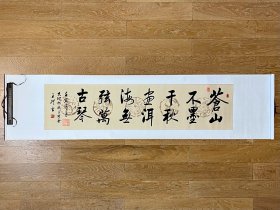 蒼山
不墨
千秋
畫洱
海無
弦萬
古琴